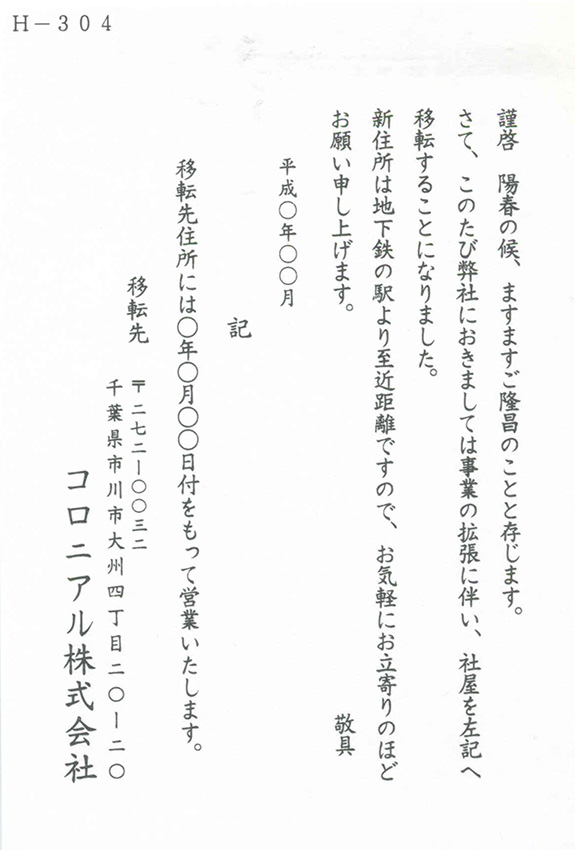 H－304
謹啓　陽春の候、ますますご隆昌のことと存じます。
さて、このたび弊社におきましては事業の拡張に伴い、社屋を左記へ
移転することになりました。
新住所は地下鉄の駅より至近距離ですので、お気軽にお立寄りのほど
お願い申し上げます。
敬具
平成〇年〇〇月
記
移転先住所には〇年〇月〇〇日付をもって営業いたします。
移転先
〒二七二ー〇〇三二
千葉県市川市大州四丁目二〇ー二〇
コロニアル株式会社